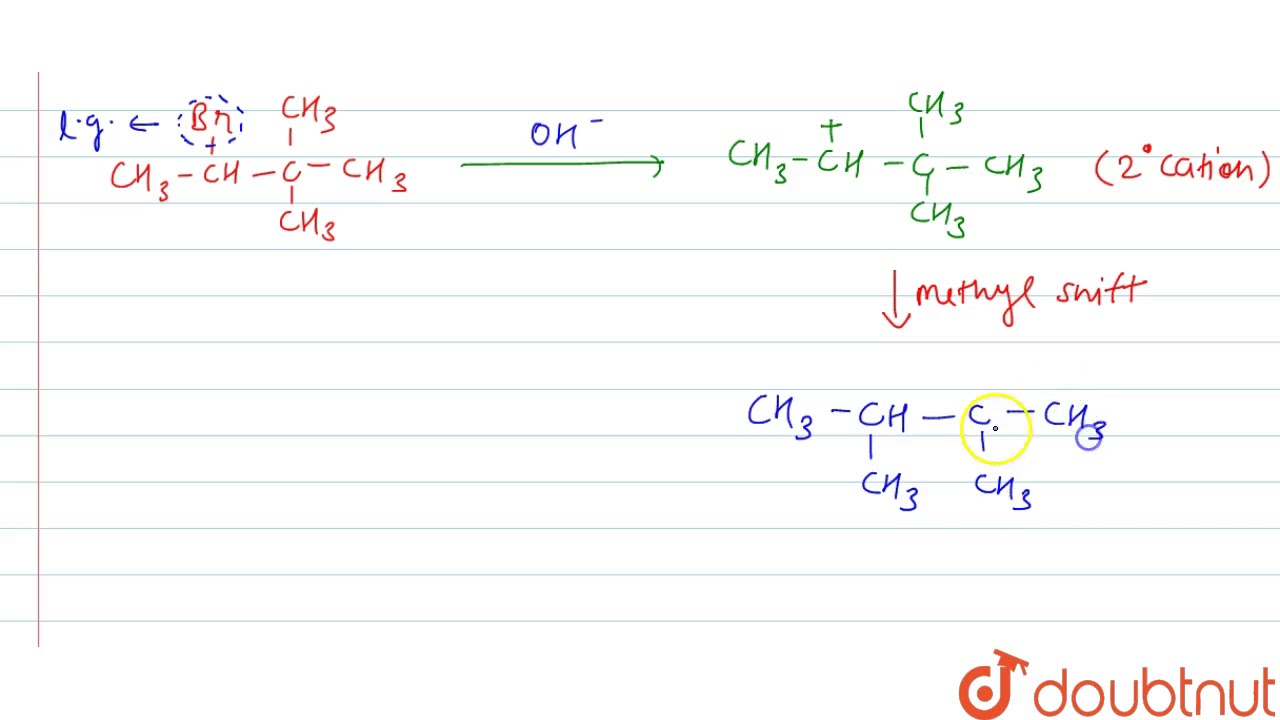 CH3 CH3
l.g. ← Br OH⁻ +
CH3 - CH - C - CH3 → CH3 - CH - C - CH3 (2° cation)
CH3 CH3
↓ methyl shift
CH3 - CH - C - CH3
CH3 CH3
doubtnut